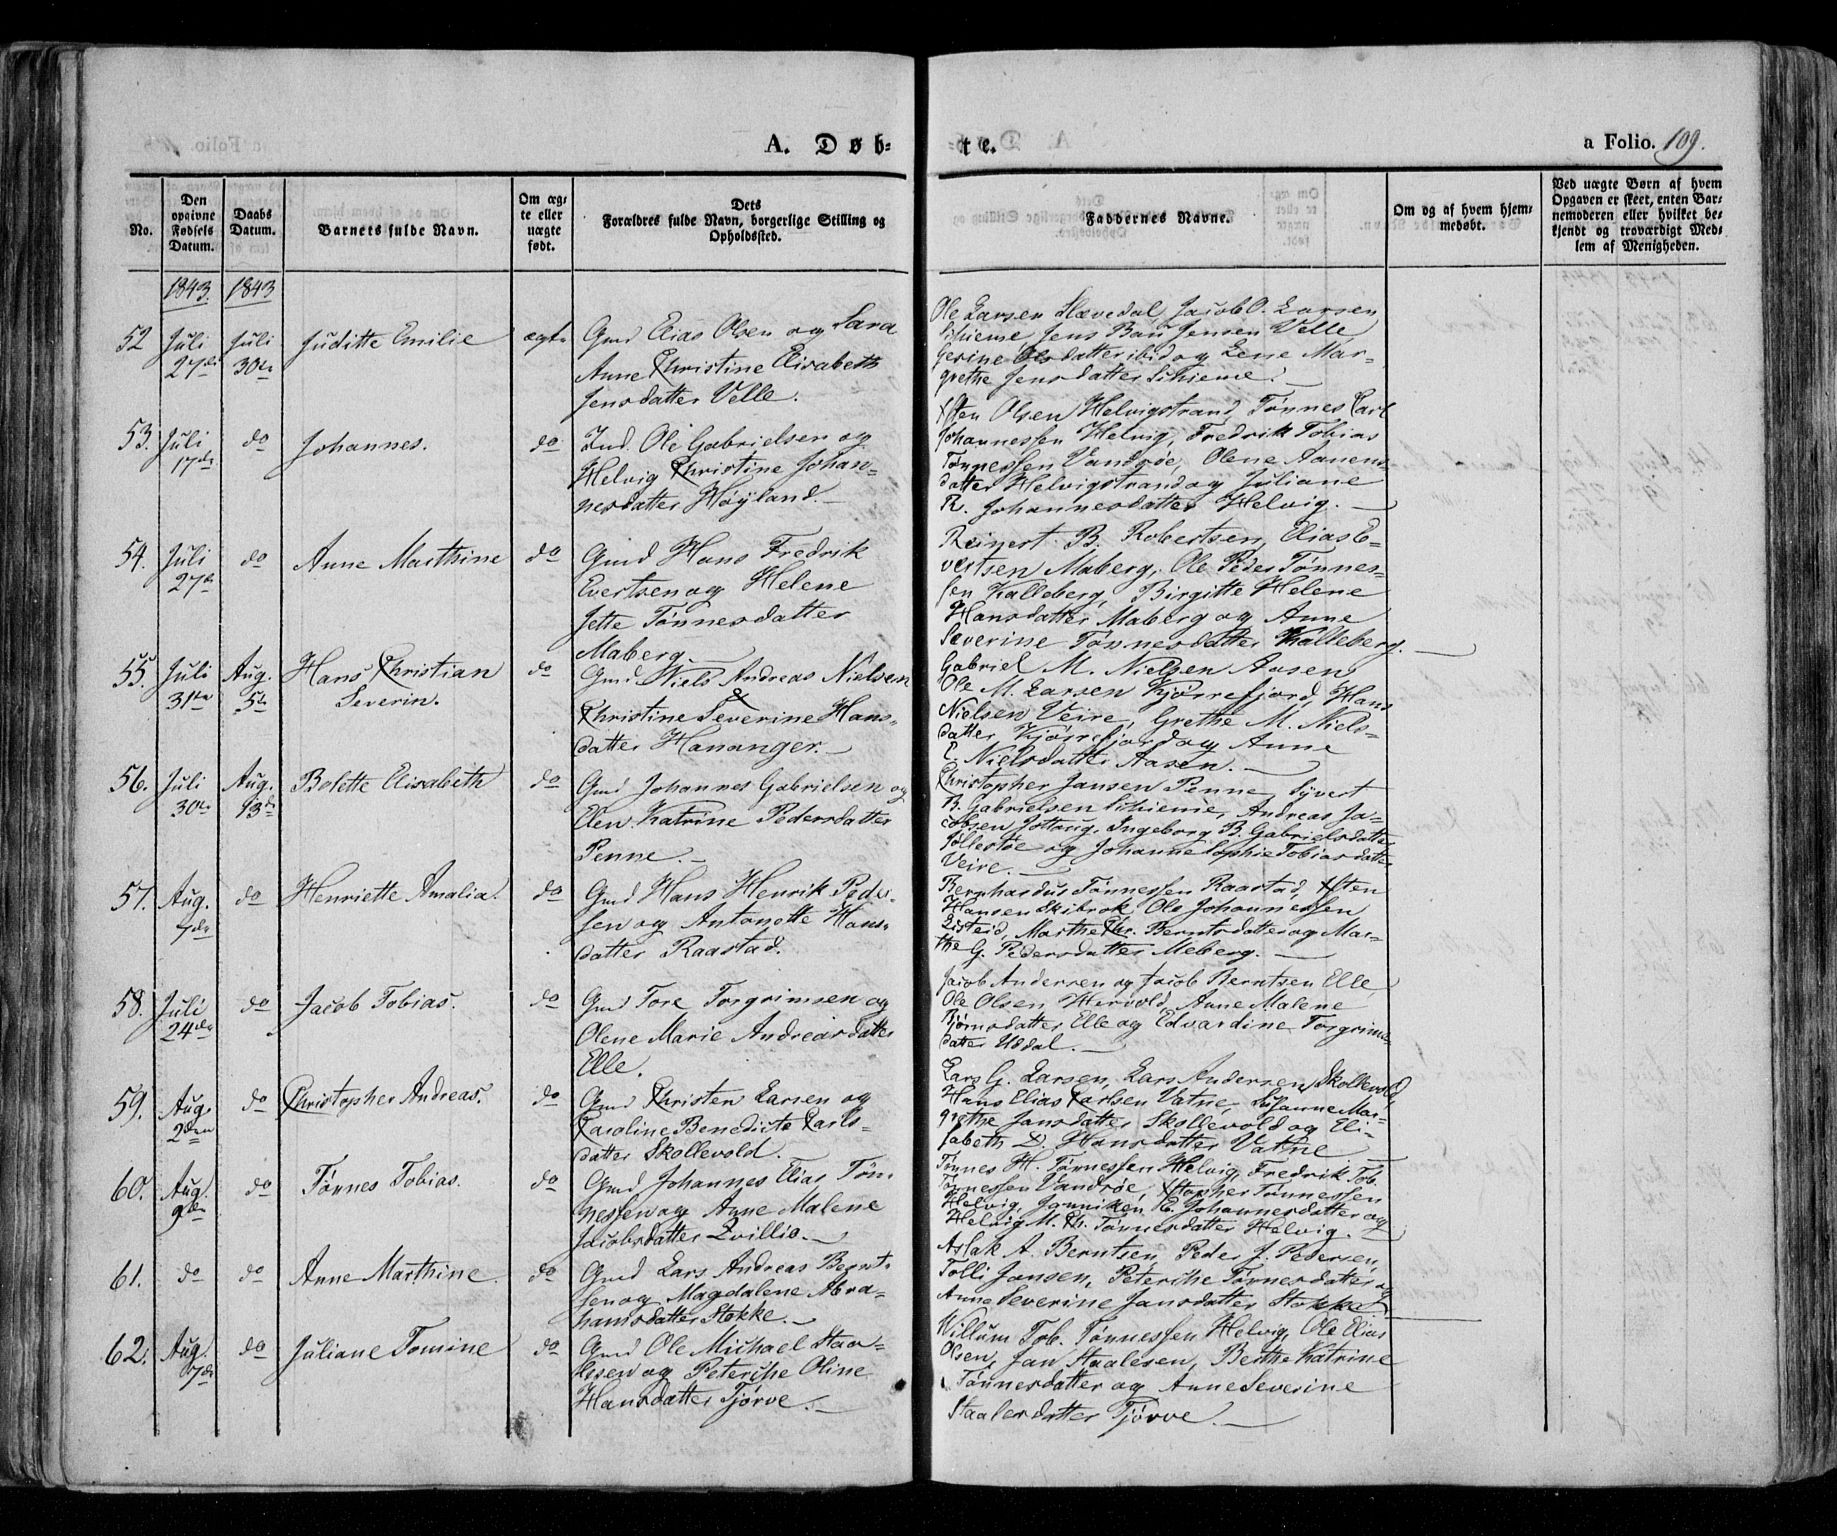 A. Døb=
te.
a Folio. 109.
No.
Den opgivne Fødsels Datum.
Daabs Datum.
Barnets fulde Navn.
Om ægte eller uægte født.
Dets Forældres fulde Navn, borgerlige Stilling og Opholdssted.
Faddernes Navne.
Om og af hvem hjemmedøbt.
Ved uægte Børn af hvem Opgaven er skeet, enten Barnemoderen eller hvilket bekjendt og troværdigt Medlem af Menigheden.
1843. 1843
52 Juli 27de Juli 30te Juditte Emilie ægte
Gmd Elias Olsen og Sara
Anne Christine Elisabeth
Jensdatter Velle.
Ole Larsen Slævedal, Jacob O. Larsen
Schieme Jens Bau Jensen Velle
Gerine Olsdatter ibid og Lene Mar-
grethe Jensdatter Schieme. —
53. Juli 17de do Johannes. do
Ind. Ole Gabrielsen og
Helvig Christine Johan-
nesdatter Høyland. —
Xsten Olsen Helvigstrand, Tønnes Carl
Johannessen Helvig, Fredrik Tobias
Tønnessen Vandrøe, Olene Aanens
datter Helvigstrand og Juliane
R. Johannesdatter Helvig. —
54. Juli 27de do Anne Marthine do
Gmd Hans Fredrik
Evertsen og Helene
Jette Tønnesdatter
Maberg
Reinert B. Robertsen, Elias E-
vertsen Maberg, Ole Peder Tønnes-
sen Kalleberg, Birgitte Helene
Hansdatter Maberg og Anne
Severine Tønnesdatter Kalleberg. —
55. Juli 31te Aug. 5te Hans Christian
Severin. do
Gmd Niels Andreas Nielsen
&
Christine Severine Hans-
datter Hananger. —
Gabriel M. Nielsen Aasen
Ole M. Larsen Kjørrefjord, Hans
Nielsen Veire, Grethe M. Niels-
datter Kjørrefjord og Anne
E. Nielsdatter Aasen. —
56. Juli 30te Aug. 13de Bolette Elisabeth do
Gmd Johannes Gabrielsen og
Elen Katrine Pedersdatter
Penne. —
Christopher Jansen Penne, Syvert
B. Gabrielsen Schieme, Andreas Ja-
cobsen Jøttaug, Ingeborg B. Gabrielsdatter
Jøllestøe og Johanne Sophie Tobiasdatter
Veire. —
57. Aug. 7de do Henriette Amalia. do
Gmd Hans Henrik Peder-
sen og Antonette Hans-
datter Raastad.
Bernhardus Tønnessen Raastad, Xsten
Hansen Skibrok, Ole Johannessen
Listeid, Marthe Chr. Berntsdatter og Mar-
the G. Pedersdatter Meberg. —
58. Juli 24de do Jacob Tobias. do
Gmd Tore Torgrimsen og
Olene Marie Andreasdatter
Elle.
Jacob Andersen og Jacob Berntsen Elle,
Ole Olsen Hervold, Anne Malene
Bjørnsdatter Elle og Edvardine Torgrims-
datter Uddal. —
59. Aug. 2den do Christopher Andreas. do
Gmd Christen Larsen og
Caroline Benedicte Carls-
datter Skollevold.
Lars G. Larsen, Lars Andersen Skollevold,
Hans Elias Carlsen Vatne, Susanne Mar-
grethe Jansdatter Skollevold og Eli-
sabeth D. Hansdatter Vatne
60. Aug. 9de do Tønnes Tobias. do
Gmd Johannes Elias Tøn-
nessen og Anne Malene
Jacobsdatter Qvillio. —
Tønnes H. Tønnessen Helvig, Fredrik Tob.
Tønnessen Vandrøe, Xstopher Tønnessen
Helvig, Janniken E. Johannesdatter og
Helvig M. Ch. Tønnesdatter Helvig. —
61. do do Anne Marthine. do
Gmd Lars Andreas Bernt-
sen og Magdalene Abra-
hamsdatter Stokke. —
Aslak A. Berntsen, Peder J. Pedersen,
Tolli Jansen, Petersche Tønnesdatter og
Anne Severine Jansdatter Stokke
62. Aug. 7de do Juliane Tomine do
Gmd Ole Michael Staa-
lesen og Petersche Oline
Hansdatter Tjørve. —
Willum Tob. Tønnessen Helvig, Ole Elias
Olsen, Jan Staalesen, Berthe Katrine
Tønnesdatter og Anne Severine
Staalesdatter Tjørve. —